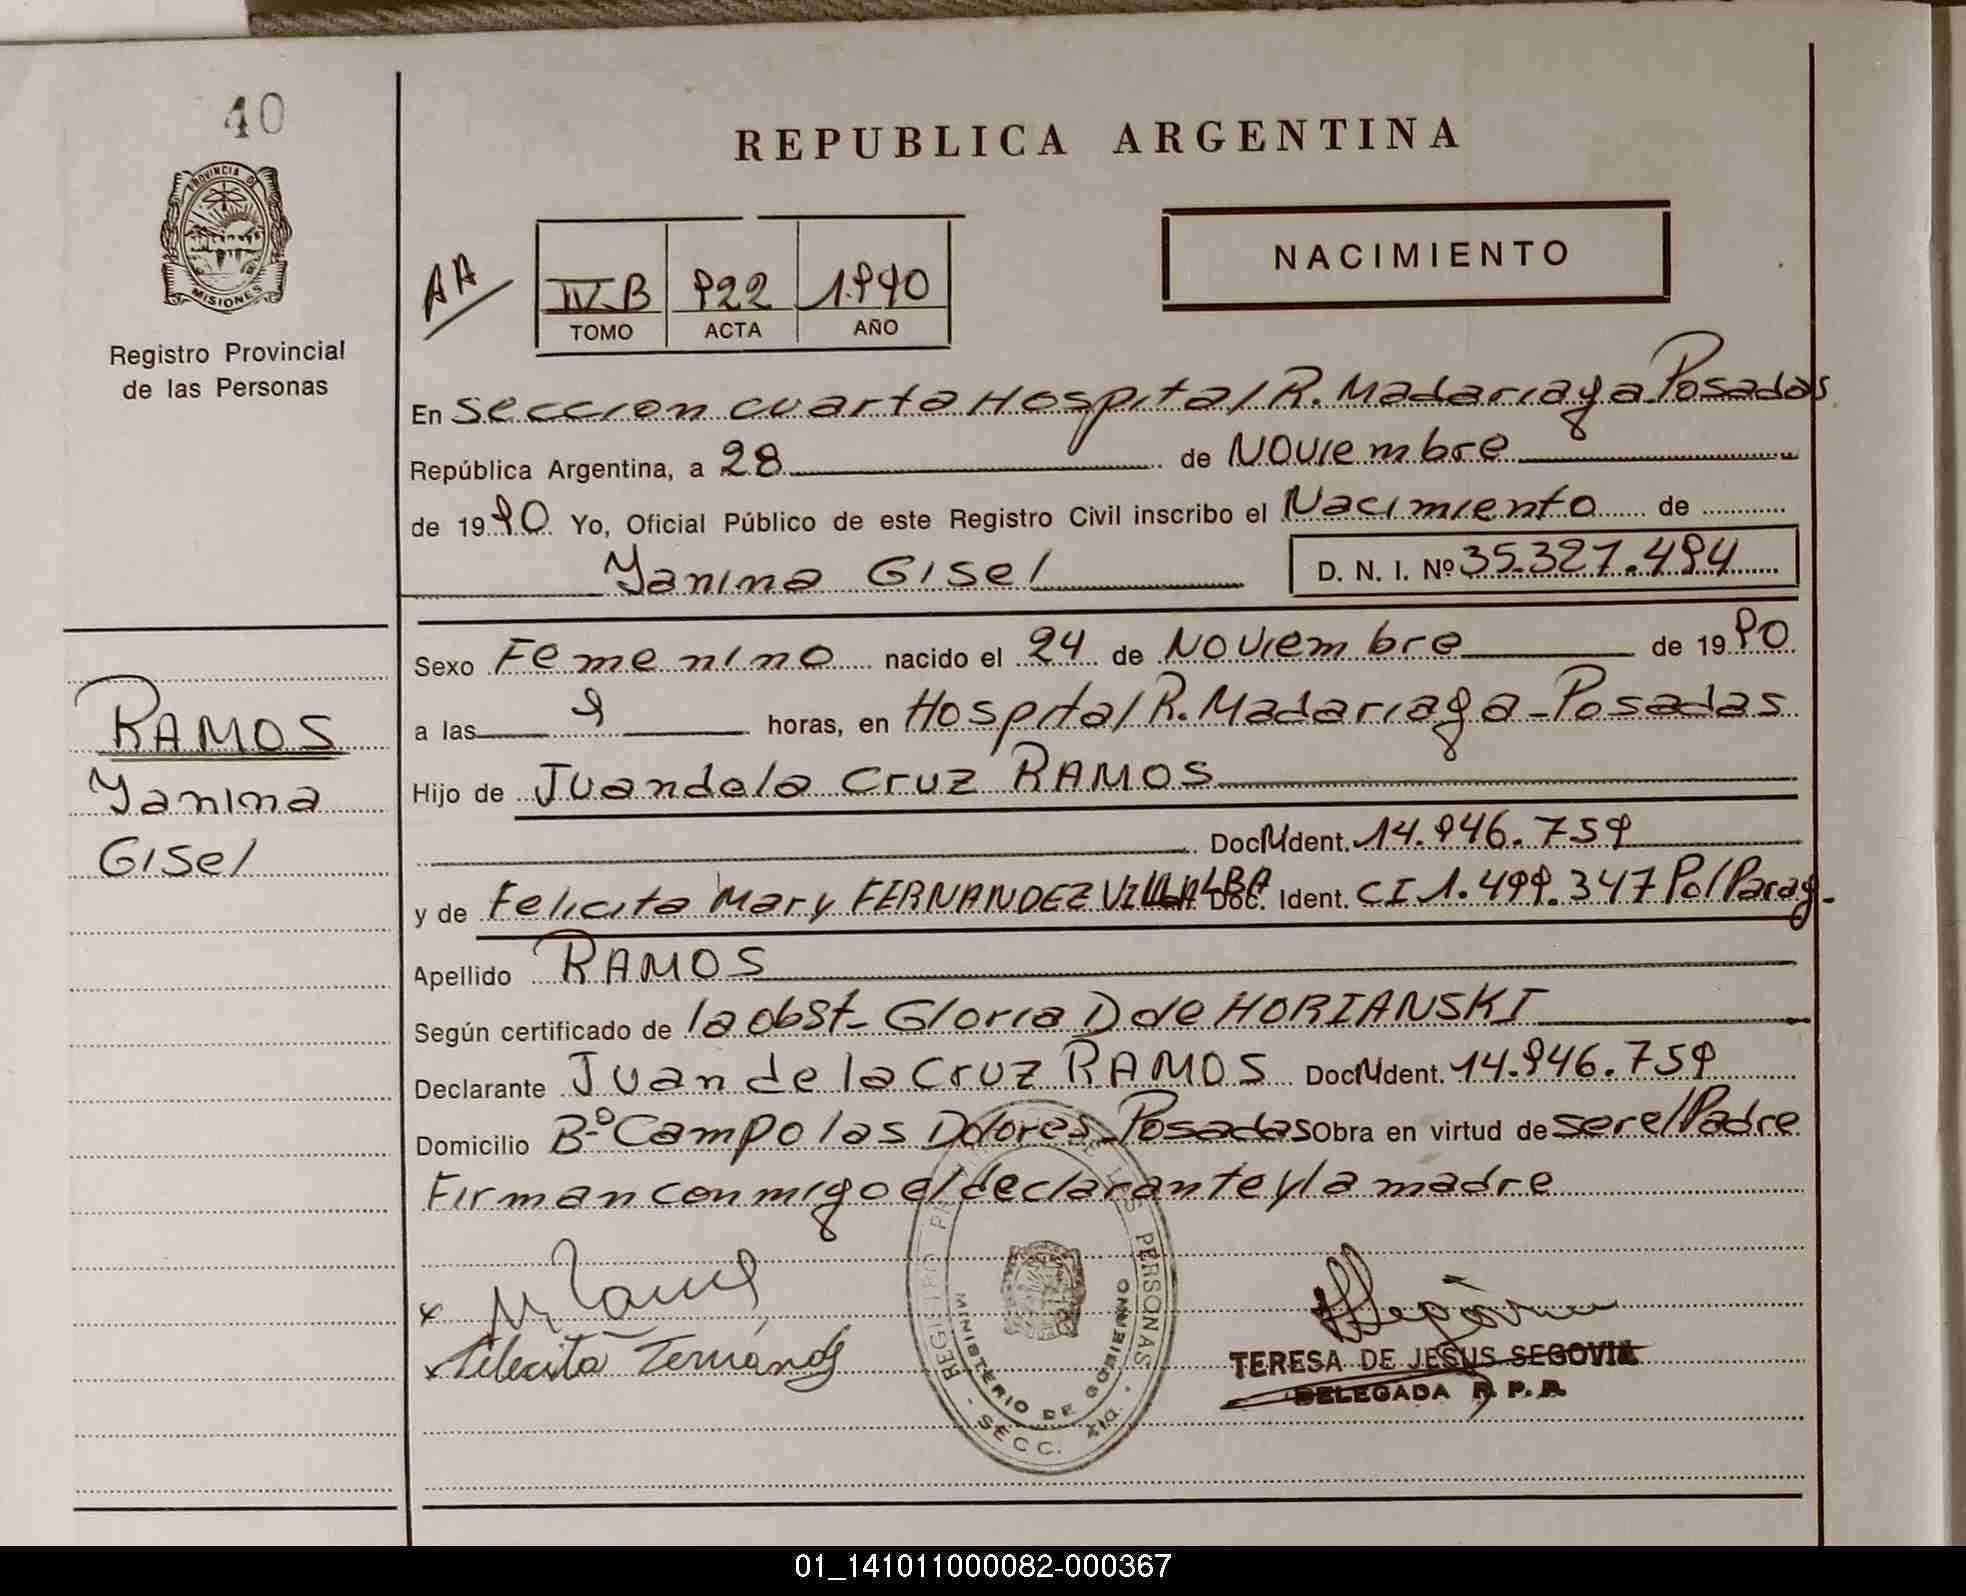 40
PROVINCIA DE
MISIONES
Registro Provincial
de las Personas
RAMOS
Yanina
Gisel
REPUBLICA ARGENTINA
AA
IV.B 922 1.990
TOMO ACTA AÑO
NACIMIENTO
En Seccion cuarta Hospital R. Madariaga Posadas
República Argentina, a 28 de Noviembre
de 1990 Yo, Oficial Público de este Registro Civil inscribo el Nacimiento de
Yanina Gisel D. N. I. Nº 35.327.494
Sexo Femenino nacido el 24 de Noviembre de 1990
a las 9 horas, en Hospital R. Madariaga - Posadas
Hijo de Juan de la Cruz RAMOS
Doc. Ident. 14.946.759
y de Felicita Mary FERNANDEZ VILLALBA Doc. Ident. CI 1.499.347 Pol Parag.
Apellido RAMOS
Según certificado de la obst. Gloria D de HORIANSKI
Declarante Juan de la Cruz RAMOS Doc. Ident. 14.946.759
Domicilio Bº Campo las Dolores - Posadas Obra en virtud de ser el Padre
Firman conmigo el declarante y la madre
REGISTRO PROVINCIAL DE LAS PERSONAS
MINISTERIO DE GOBIERNO
- SECC. 4ta. -
TERESA DE JESUS SEGOVIA
DELEGADA R. P. P.
01_141011000082-000367